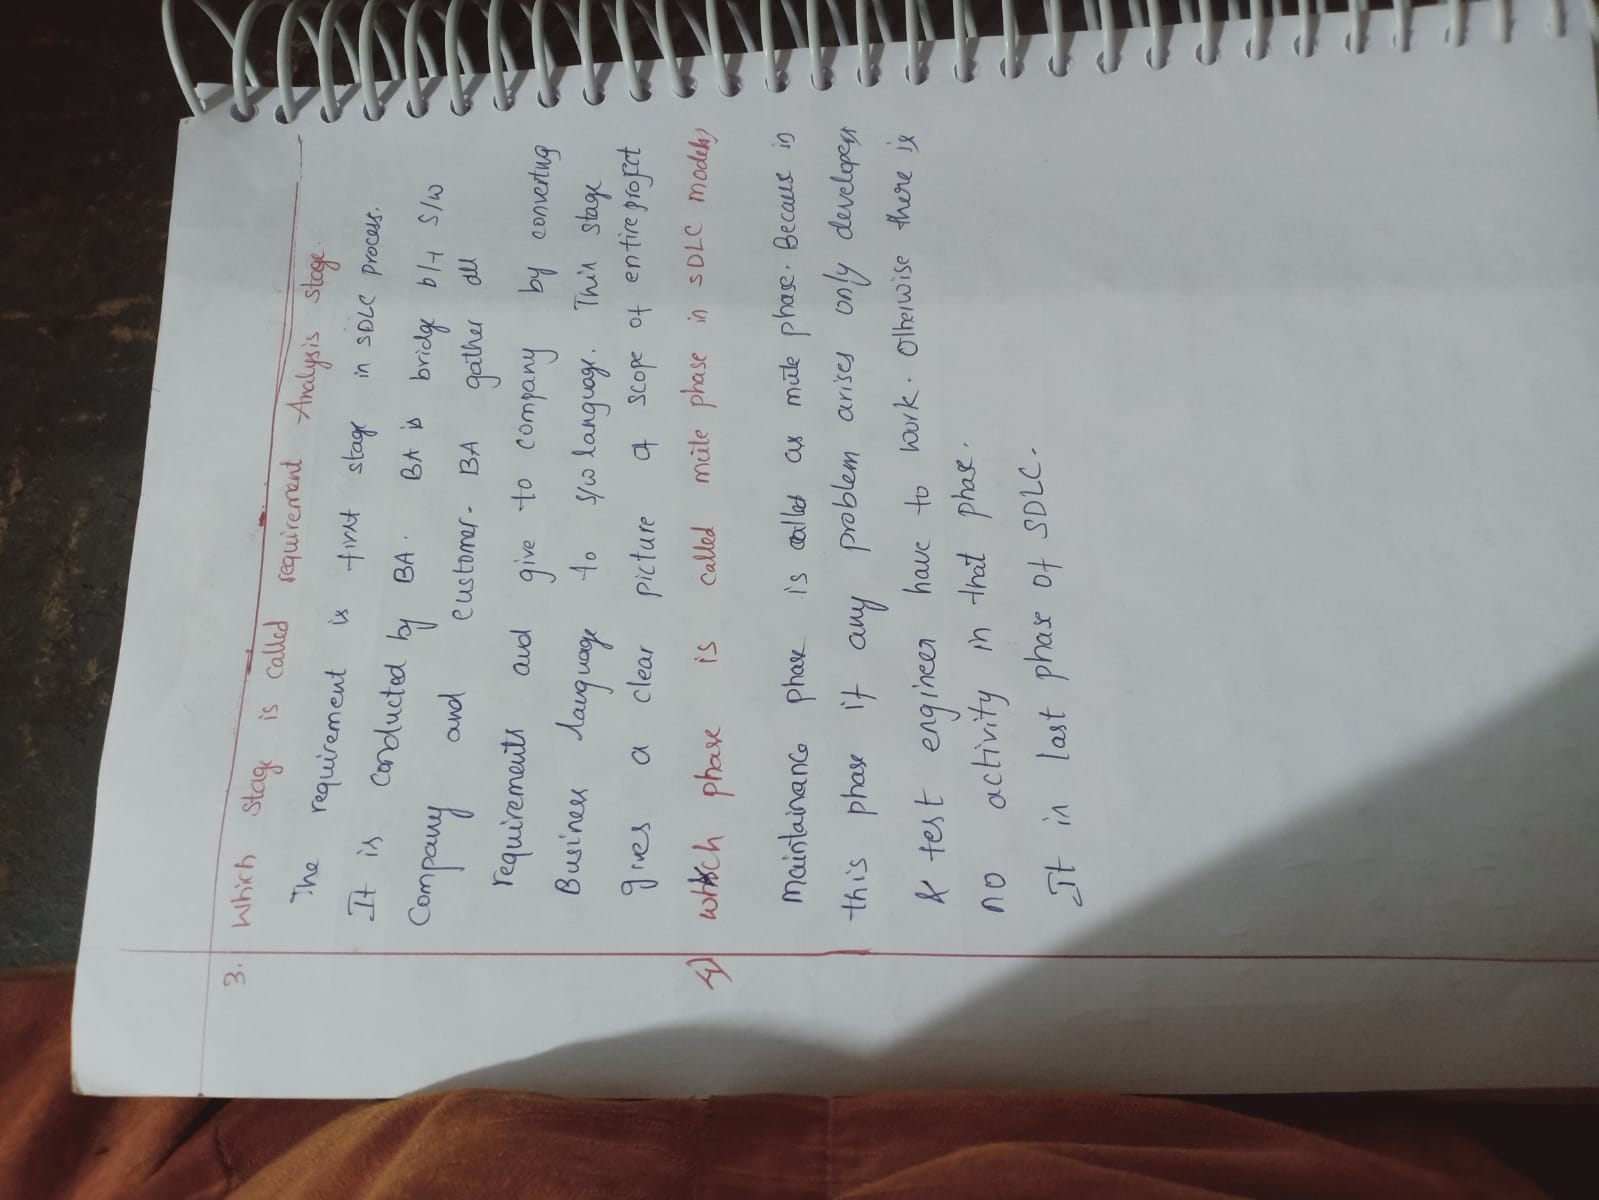 3. Which stage is called requirement Analysis stage.
The requirement is first stage in SDLC process.
It is conducted by BA. BA is bridge b/t S/w
Company and customer. BA gather all
requirements and give to company by converting
Business language to s/w language. This stage
gives a clear picture of scope of entire project
4) which phase is called mute phase in SDLC models
maintainanc phase is called as mute phase. Because in
this phase if any problem arises only developers
& test engineer have to work. Otherwise there is
no activity in that phase.
It in last phase of SDLC.